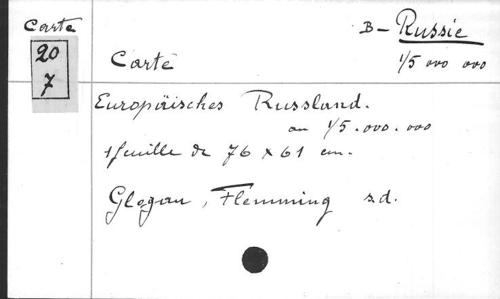 Carte
20
7
B - Russie
Carte
1/5 000 000
Europäisches Russland.
au 1/5.000.000
1 feuille de 76 x 61 cm.
Glogau, Flemming s.d.